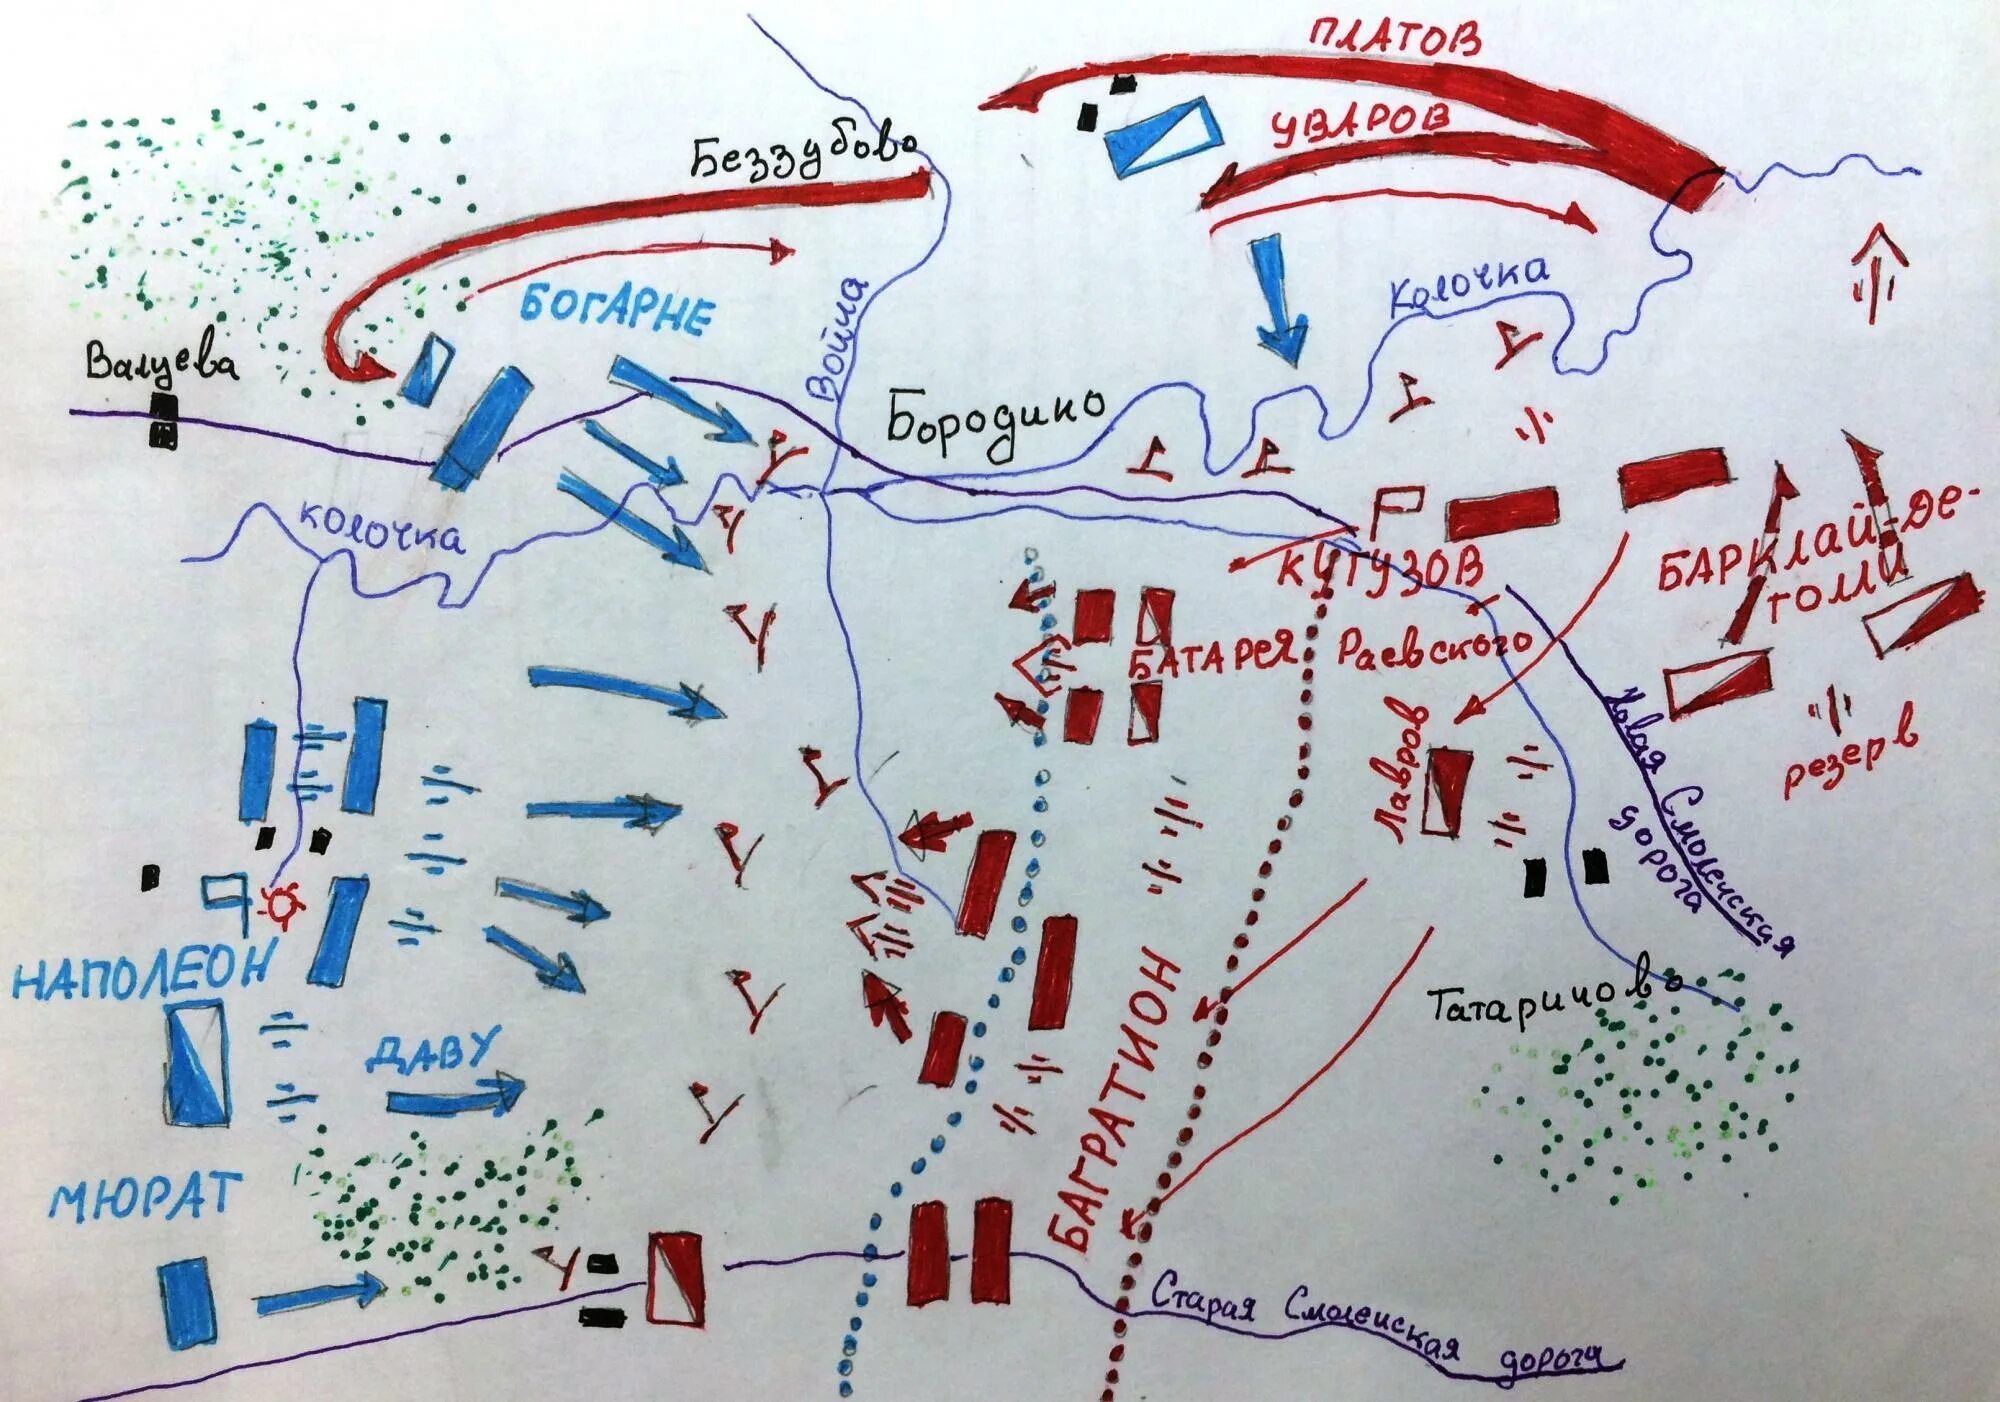 ПЛАТОВ
УВАРОВ
Беззубово
Колочка
БОГАРНЕ
Войла
Валуева
Бородино
колочка
КУТУЗОВ
БАРКЛАЙ-ДЕ-
ТОЛЛИ
БАТАРЕЯ Раевского
резерв
Лавров
Новая Смоленская
дорога
НАПОЛЕОН
ДАВУ
МЮРАТ
БАГРАТИОН
Татариново
Старая Смоленская дорога